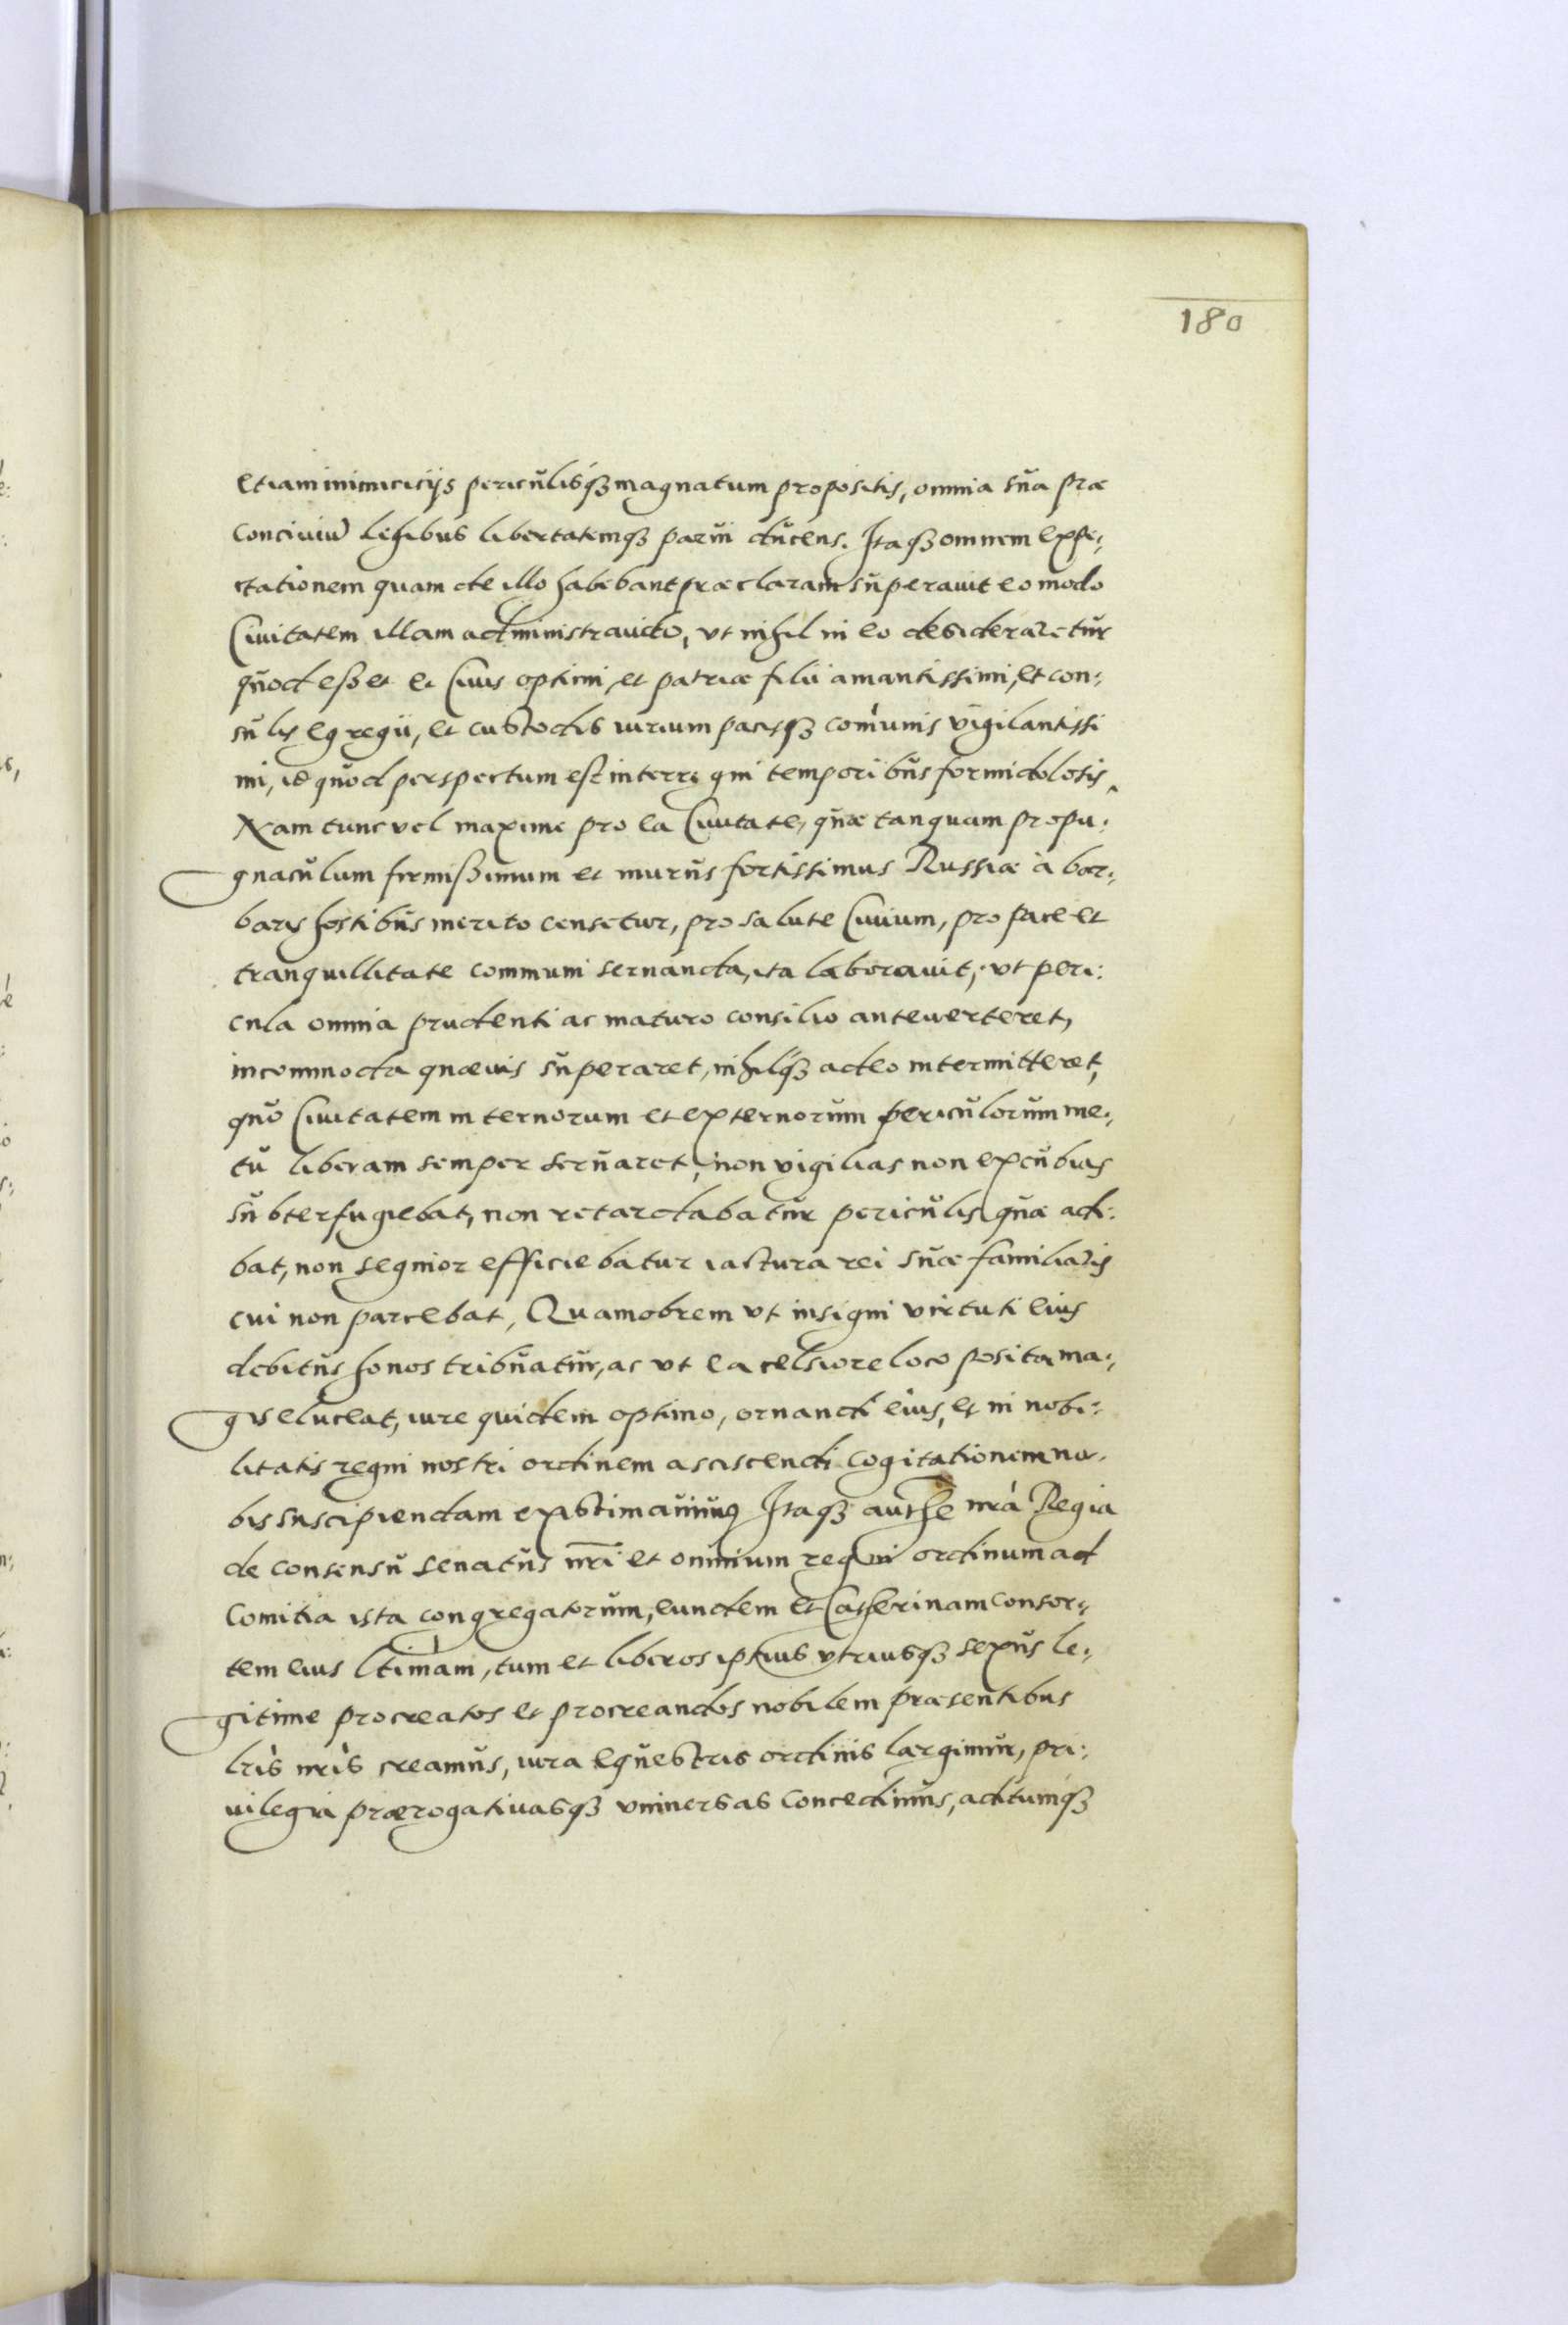 180
etiam inimicicijs periculisq3 magnatum propositis, omnia sua præ
conciuiũ legibus libertatemq3 parui ducens. Itaq3 omnem expe:
ctationem quam de illo habebant præclaram superauit eo modo
Ciuitatem illam administrando, vt nihil in eo desideraretur
quod esset et Ciuis optimi, et patriæ filii amantissimi, et con:
sulis egregii, et custodis iurium pacisq3 cõmunis vigilantissi
mi, id quod perspectum est interregni temporibus formidolosis.
Nam tunc vel maxime pro ea Ciuitate, quæ tanquam propu:
gnaculum firmissimum et murus fortissimus Russiæ à bar:
baris hostibus merito censetur, pro salute Ciuium, pro pace et
tranquillitate communi seruanda, ita laborauit, vt peri:
cula omnia prudenti ac maturo consilio anteuerteret,
incommoda quæuis superaret, nihilq3 adeo intermitteret,
quo Ciuitatem internorum et externorum periculorum me:
tu liberam semper seruaret, non vigilias non excubias
subterfugiebat, non retardabatur periculis quæ adi:
bat, non segnior efficiebatur iactura rei suæ familiaris
cui non parcebat, Quamobrem vt insigni virtuti eius
debitus honos tribuatur, ac vt ea celsiore loco posita ma:
gis eluceat, iure quidem optimo, ornandi eius, et in nobi:
litatis regni nostri ordinem asciscendi cogitationem no:
bis suscipiendam existimauimus Itaq3 authe nrã Regia
de consensu senatus nrĩ et omnium regni ordinum ad
Comitia ista congregatorum, eundem et Catherinam consor:
tem eius ltimam, tum et liberos ipsius vtriusq3 sexus le:
gitime procreatos et procreandos nobilem præsentibus
lrĩs nrĩs creamus, iura equestris ordinis largimur, pri:
uilegia prærogatiuasq3 vniuersas concedimus, aditumq3